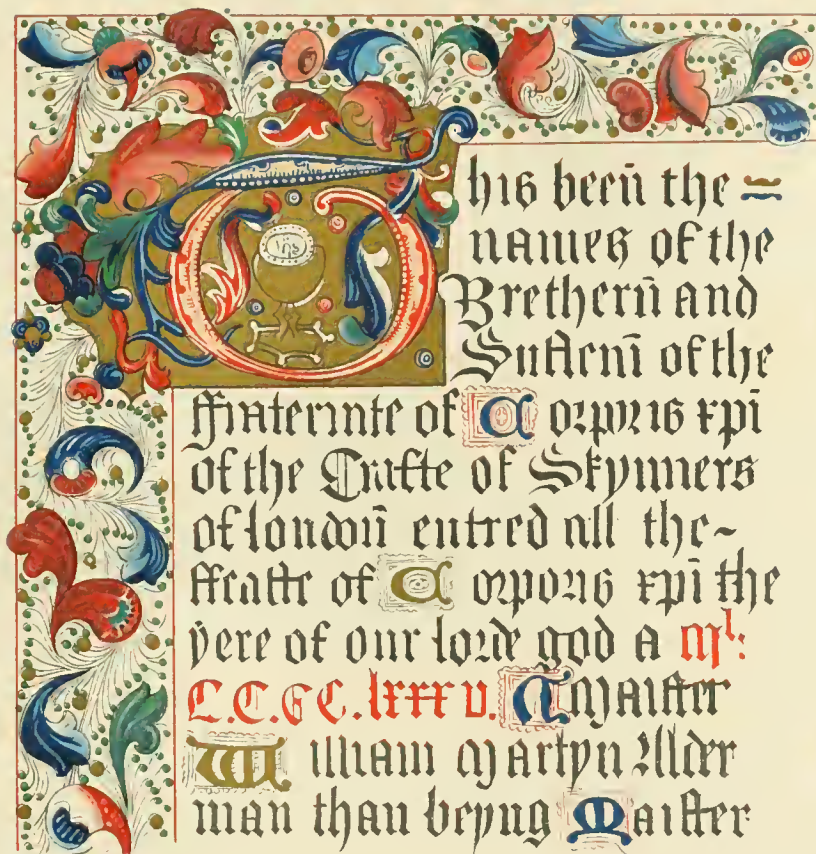 This beeñ the =
names of the
Bretherñ and
Susterñ of the
ffraternite of Corporis xpi
of the Crafte of Skynners
of londoñ entred all the~
ffeaste of Corporis xpi the
yere of our lorde god a Mˡ:
C.C.C.C.lxxxv. A Maister
William Martyn Alder
man than beyng Maister
ihs